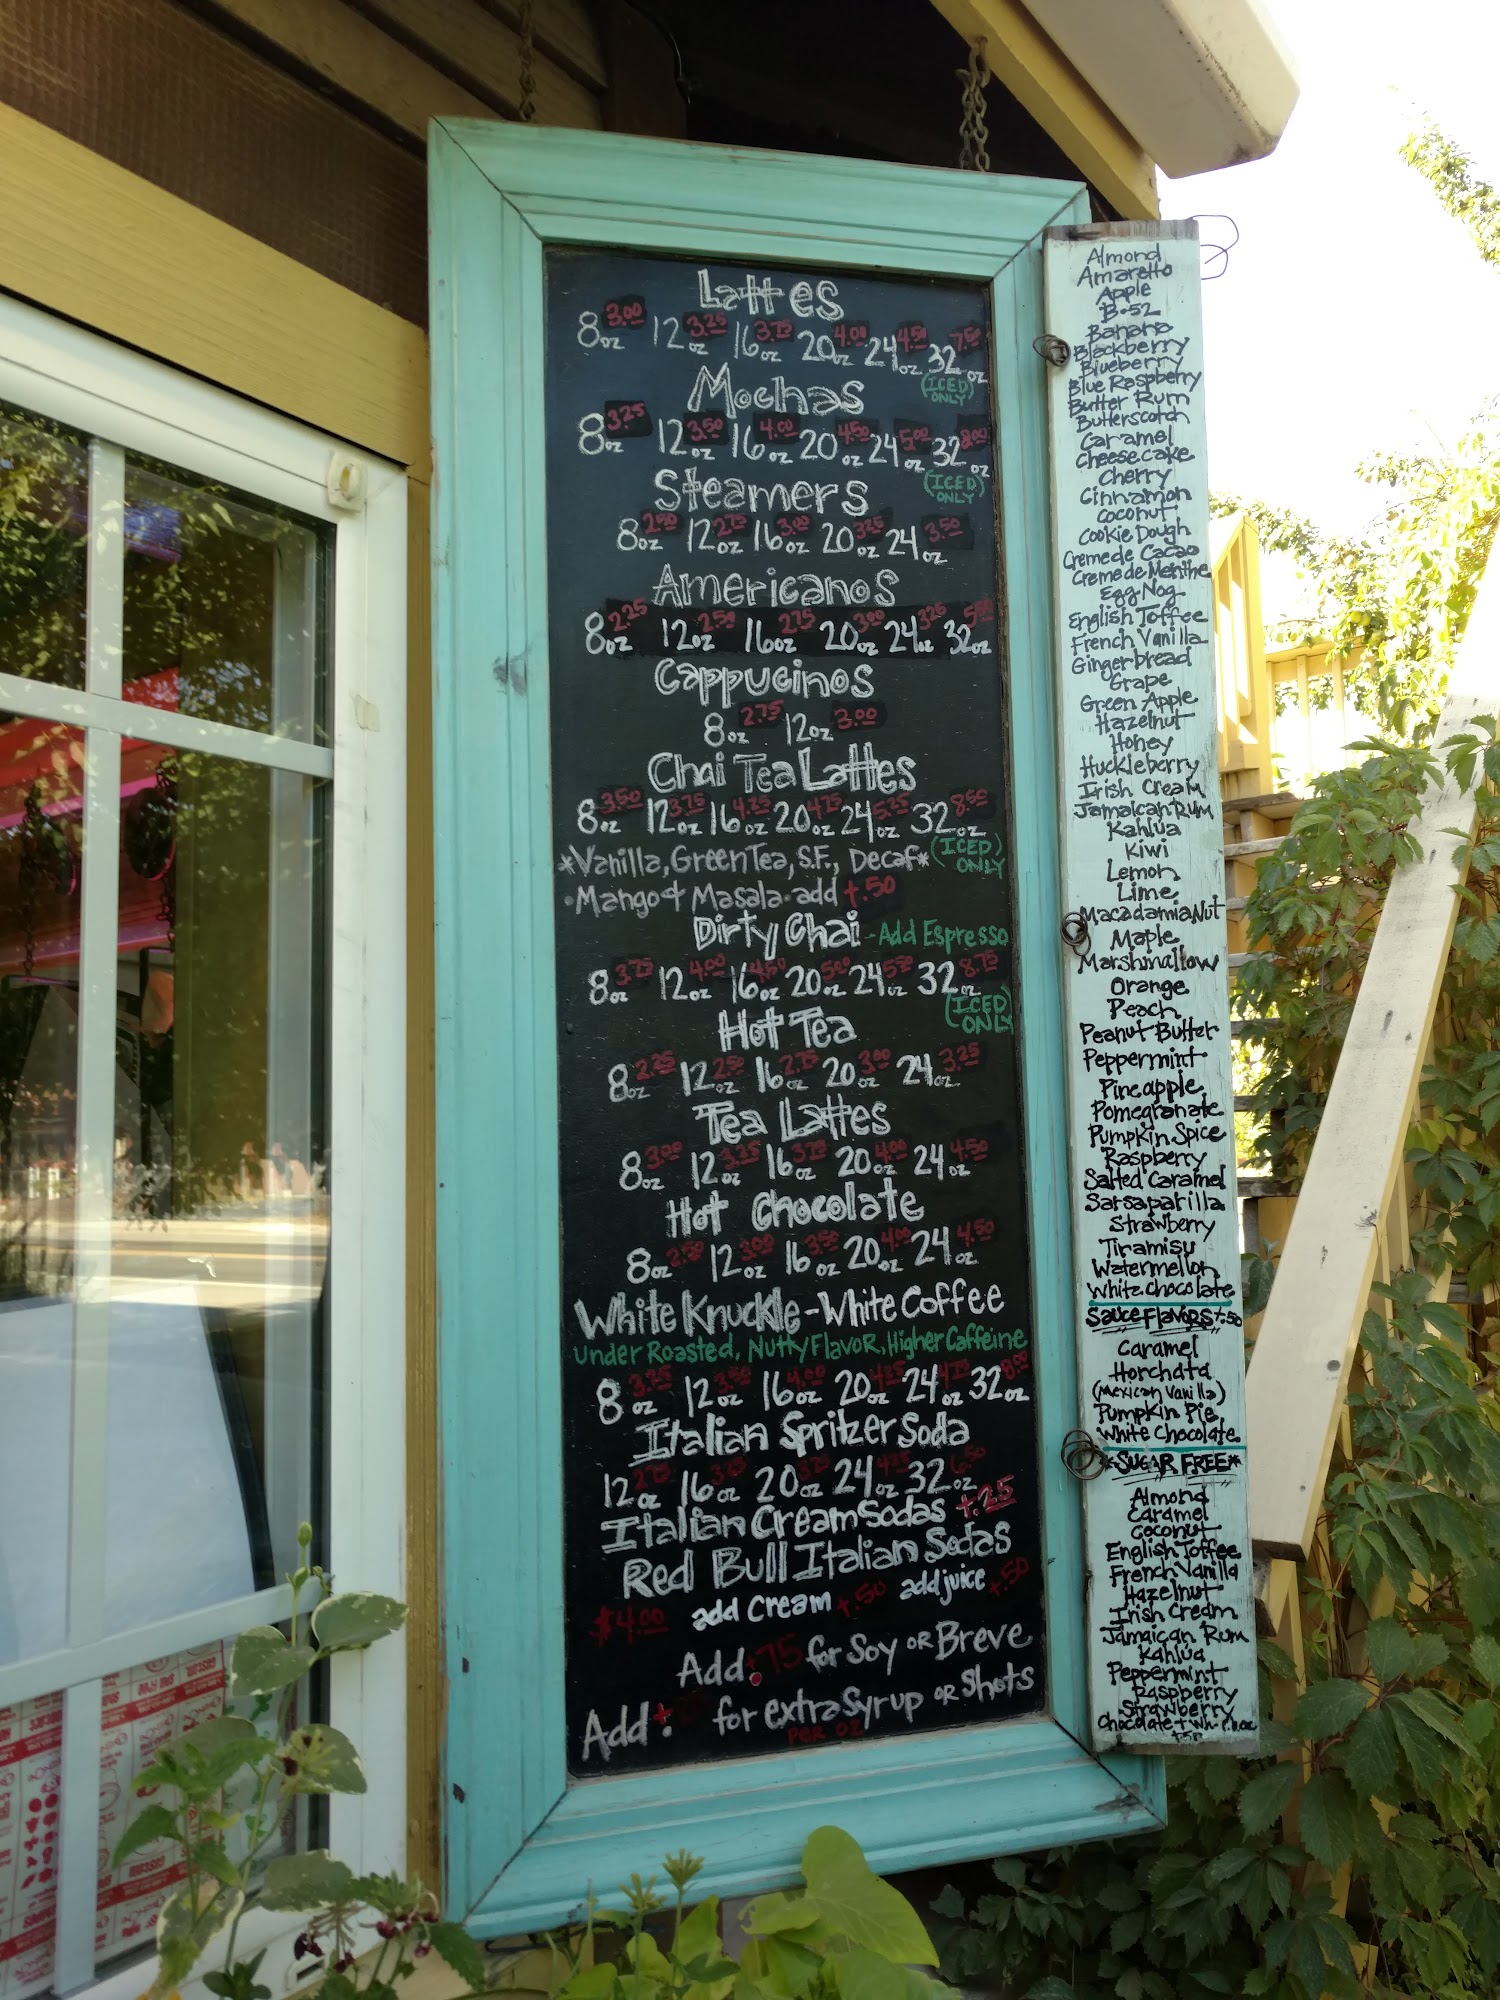 Lattes
8oz 3.00 12oz 3.25 16oz 3.75 20oz 4.00 24oz 4.50 32oz 7.50
(ICED ONLY)
Mochas
8oz 3.25 12oz 3.50 16oz 4.00 20oz 4.50 24oz 5.00 32oz 8.00
(ICED ONLY)
Steamers
8oz 2.50 12oz 2.75 16oz 3.00 20oz 3.25 24oz 3.50
Americanos
8oz 2.25 12oz 2.50 16oz 2.75 20oz 3.00 24oz 3.25 32oz
Cappucinos
8oz 2.75 12oz 3.00
Chai Tea Lattes
8oz 3.50 12oz 3.75 16oz 4.25 20oz 4.75 24oz 5.25 32oz 8.50
*Vanilla, Green Tea, S.F., Decaf* (ICED ONLY)
•Mango & Masala•add +.50
Dirty Chai -Add Espresso
8oz 3.75 12oz 4.00 16oz 4.50 20oz 5.00 24oz 5.50 32oz 8.75
(ICED ONLY)
Hot Tea
8oz 2.25 12oz 2.50 16oz 2.75 20oz 3.00 24oz 3.25
Tea Lattes
8oz 3.00 12oz 3.25 16oz 3.75 20oz 4.00 24oz 4.50
Hot Chocolate
8oz 2.50 12oz 3.00 16oz 3.50 20oz 4.00 24oz 4.50
White Knuckle-White Coffee
Under Roasted, Nutty Flavor, Higher Caffeine
8oz 3.25 12oz 3.50 16oz 4.00 20oz 4.25 24oz 4.75 32oz 8.00
Italian Spritzer Soda
12oz 2.75 16oz 3.25 20oz 24oz 4.25 32oz 6.50
Italian Cream Sodas +.25
Red Bull Italian Sodas
$4.00 add Cream +.50 add juice +.50
Add +.75 for Soy or Breve
Add +. for extra Syrup or Shots
PER OZ
Almond
Amaretto
Apple
B-52
Banana
Blackberry
Blueberry
Blue Raspberry
Butter Rum
Butterscotch
Caramel
Cheesecake
Cherry
Cinnamon
Coconut
Cookie Dough
Creme de Cacao
Creme de Menthe
Egg Nog
English Toffee
French Vanilla
Gingerbread
Grape
Green Apple
Hazelnut
Honey
Huckleberry
Irish Cream
Jamaican Rum
Kahlua
Kiwi
Lemon
Lime
Macadamia Nut
Maple
Marshmallow
Orange
Peach
Peanut Butter
Peppermint
Pineapple
Pomegranate
Pumpkin Spice
Raspberry
Salted Caramel
Sarsaparilla
Strawberry
Tiramisu
Watermellon
White Chocolate
Sauce Flavors +.50
Caramel
Horchata
(Mexican Vanilla)
Pumpkin Pie
White Chocolate
*SUGAR FREE*
Almond
Caramel
Coconut
English Toffee
French Vanilla
Hazelnut
Irish Cream
Jamaican Rum
Kahlua
Peppermint
Raspberry
Strawberry
Chocolate +
+.50